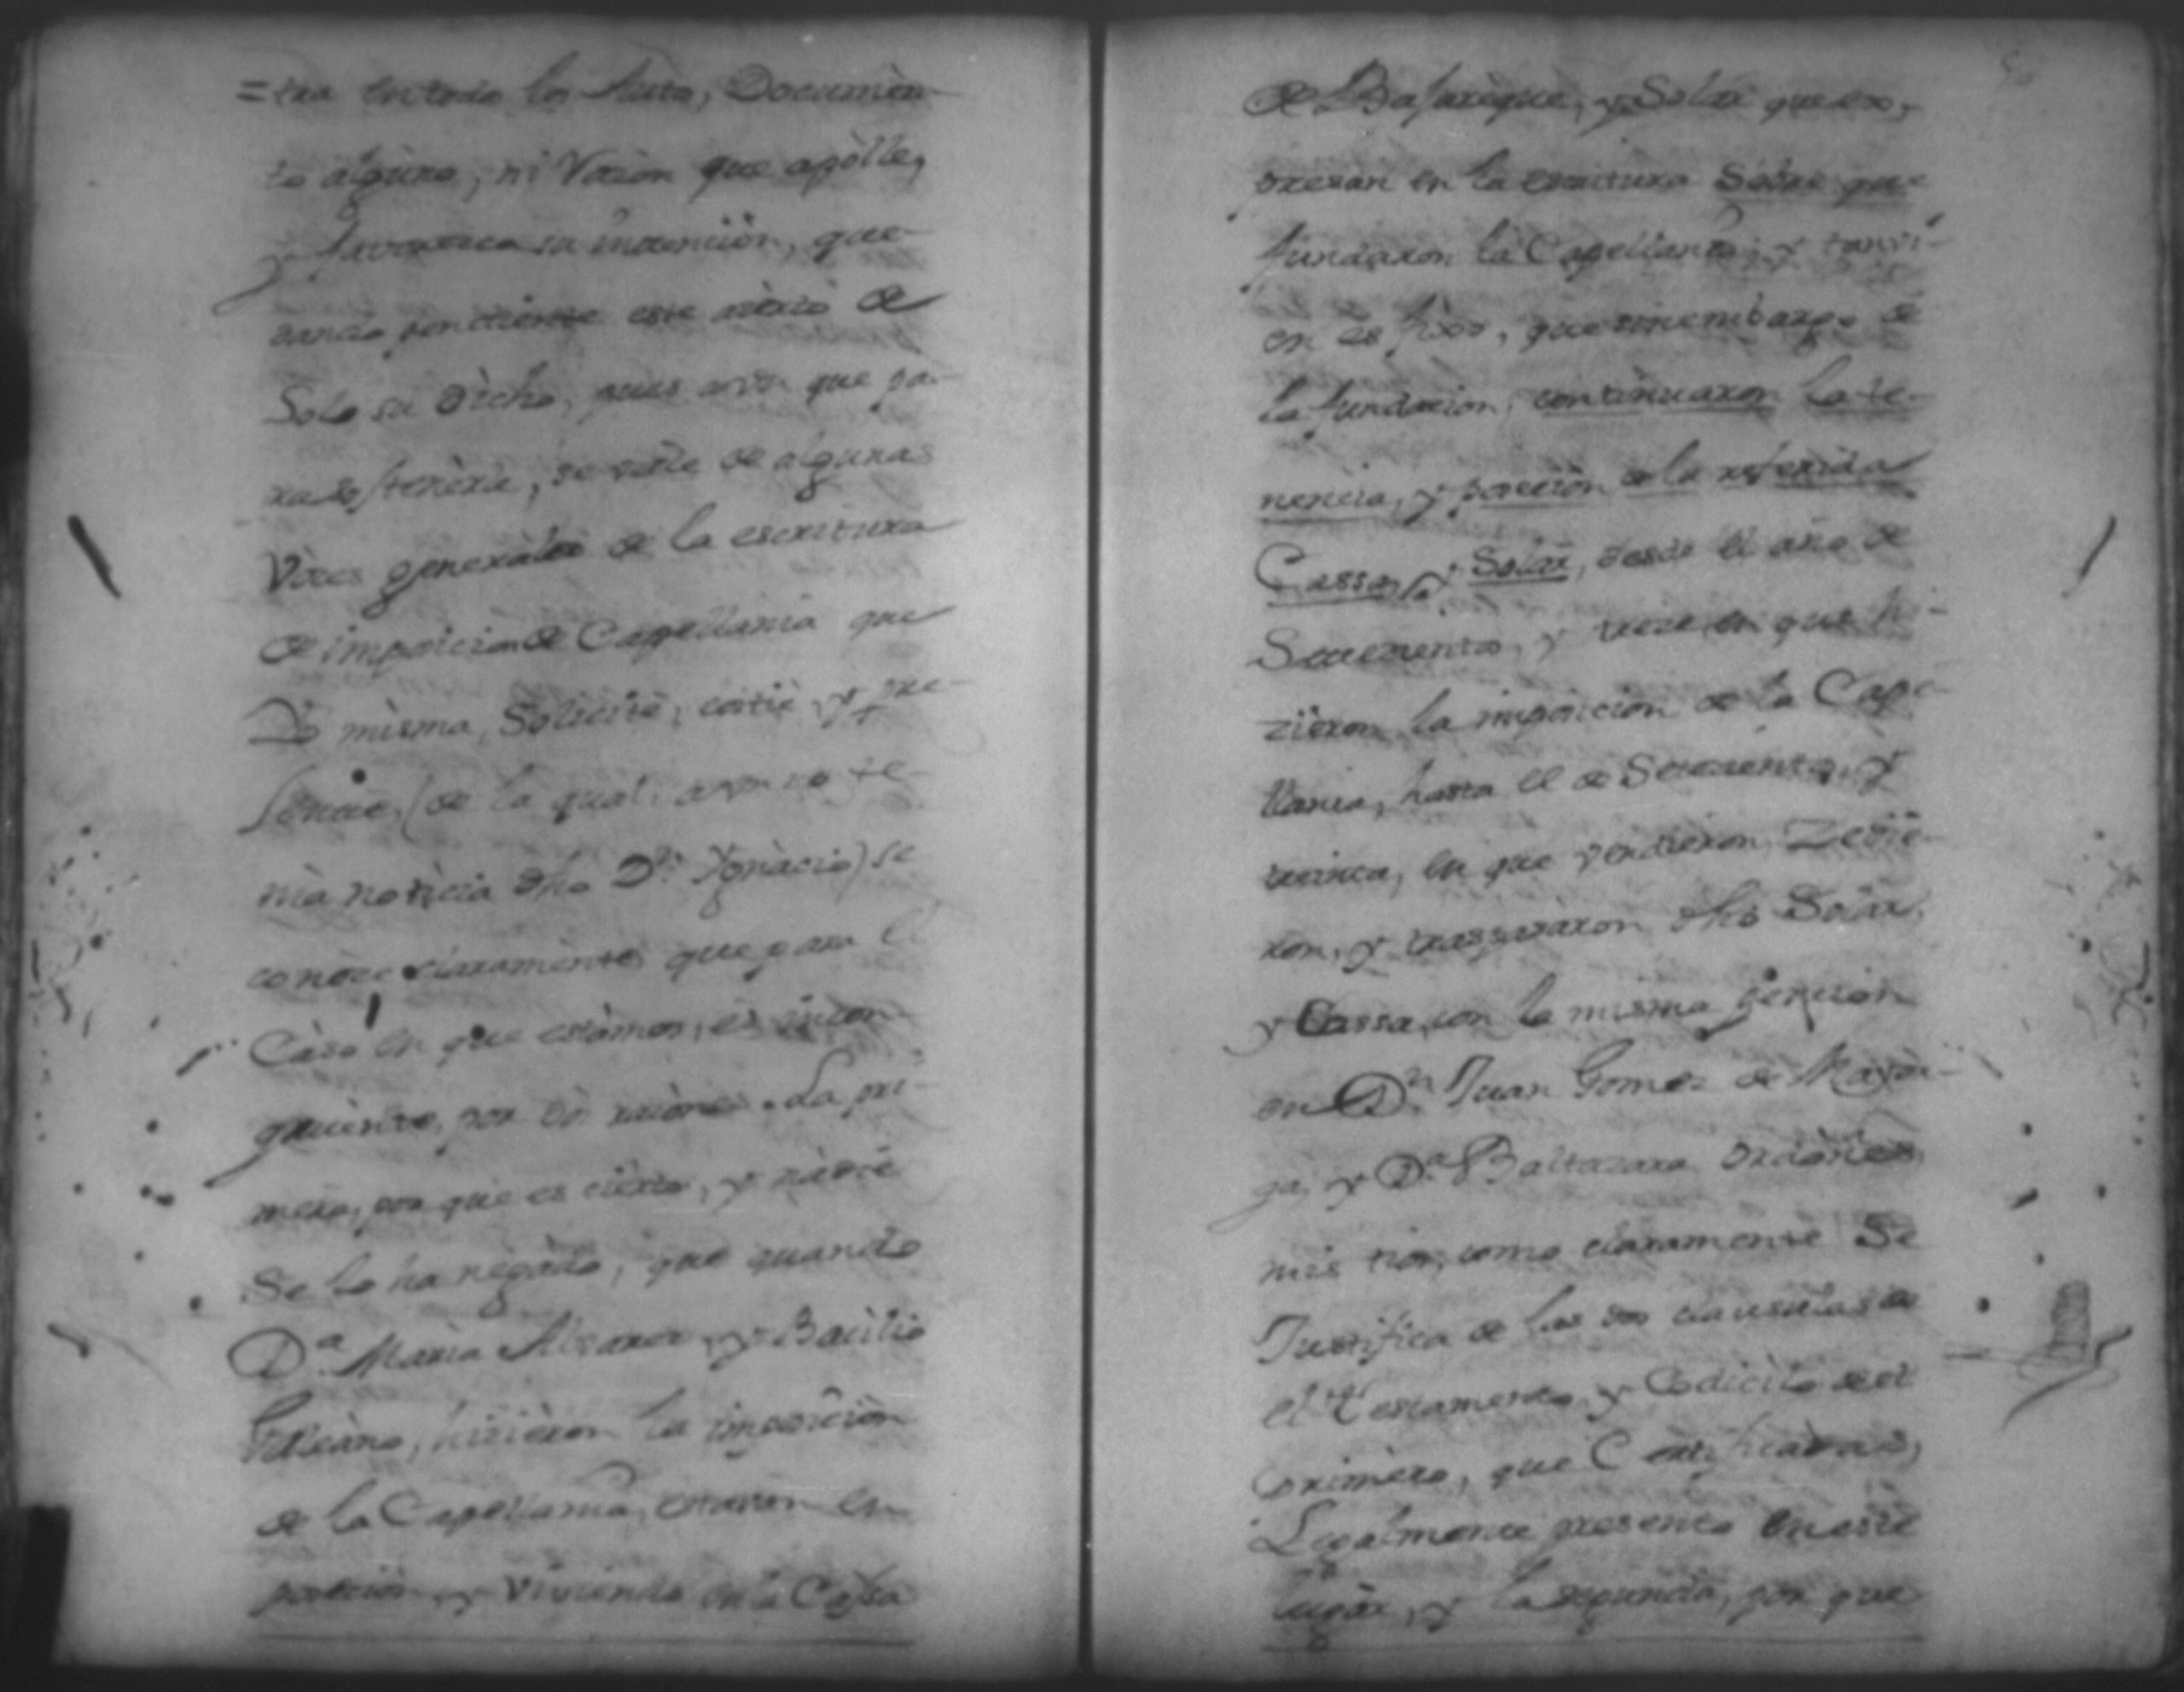 =tra en todo los Auto, Documèn-
to algùno, ni Vocion que apòlle,
y favorezca su intenciòn, que-
dando pendiente este àierto de
Solo su dicho, pues aun que pa-
ra sostenèrle, se vàle de algunas
Vòces generàles de la escritura
de imposicion de Capellanìa que
Yo misma, Solicitè, costiè, y pre-
sentè, (de la qual, aun no te-
nìa notìcia dho Dn. Ygnàcio) se
conòce claramènte, que para el
Càso en que estàmos, es incon-
gruènte, por dos raciònes. La pri-
mera, por que es cièrto, y nàdie
Se lo ha negàdo, que quando
Da. Maria Alvarez, y Bacìlio
Galeàno, hicièron la imposiciòn
de la Capellanìa, estavan en
poseciòn, y Viviendo en la Cassa
de Bajarèque, y Solar que ex-
presan en la escritura Sobre que
fundaron la Capellanìa; y tanvi-
en es fixo, que sinembàrgo de
la fundacion, continuaron la te-
nencia, y poseciòn de la referida
Cassa, y Solar, desde el año de
Setecientos, y trece en que hi-
zieron la imposicion de la Cape-
llania, hasta el de Setecientos, y
treinta, en que vendieron, Zedie-
ron, y trassparàron dho Solar,
y Cassa, con la misma penciòn
en Dn. Juan Gomez de Mayor-
ga, y Da. Baltazara Ordòñes,
mis tios, como claramente Se
Justifica de las dos clausulas de
el Testamento, y Codicilo de el
primèro, que Certificadas,
Legalmente presento en este
lugàr, y la segunda, por que